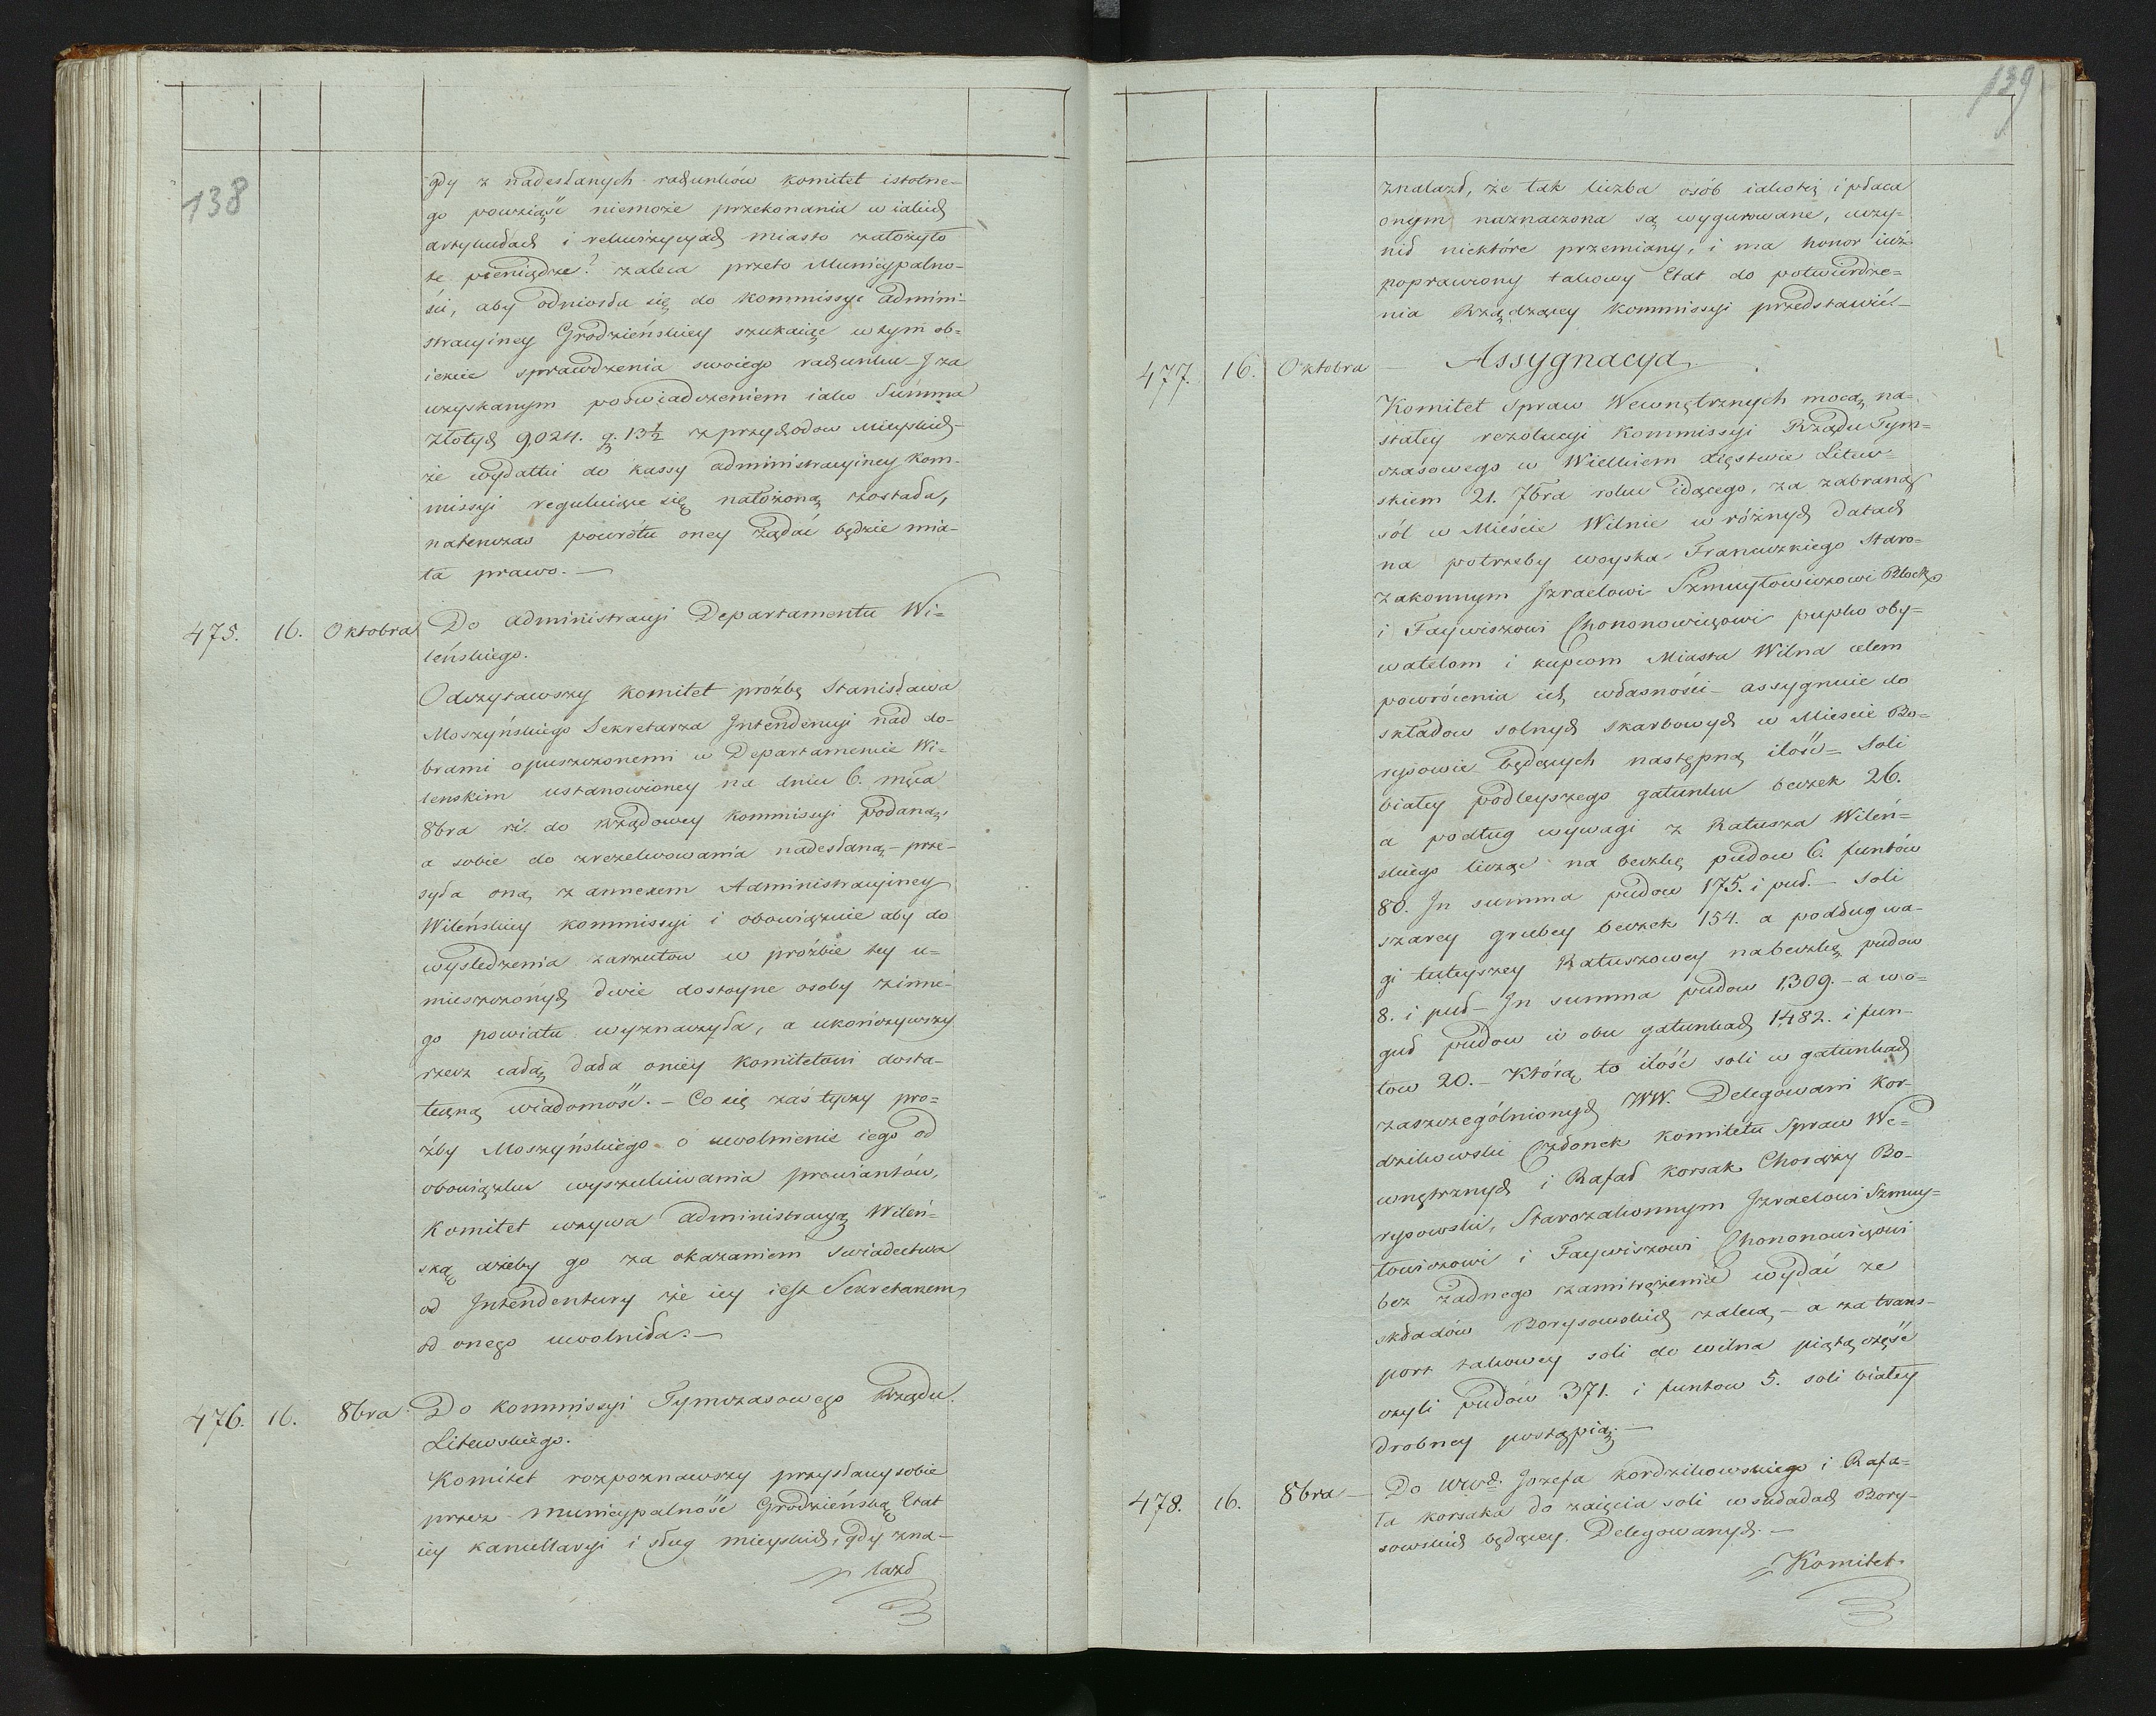 138
gdy z nadesłanych rachunków Komitet istotne-
go powziąść niemoże przekonania w iakich
artykułach i rekwizycyach miasto założyło
te pieniądze? zaleca przeto Municypalno-
ści, aby odniosła się do Kommissyi Admini-
stracyiney Grodzieńskiey szukaiąc w tym ob-
iekcie sprawdzenia swoiego rachunku. I za
uzyskanym poświadczeniem iako Summa
złotych 9,024. g. 13½ z przychodow Mieyskich
że wydatki do kassy administracyiney Kom-
missyi reguluiące się nałożoną została,
natenczas powrotu oney żądać będzie mia-
ła prawo. —
475. 16. Oktobra Do Administracyi Departamentu Wi=
leńskiego.
Odczytawszy Komitet proźbę Stanisława
Moszyńskiego Sekretarza Intendencyi nad do-
brami opuszczonemi w Departamencie Wi=
lenskim ustanowioney na dniu 6. mca
8bra r. i. do Rządowey Kommissyi podaną,
a sobie do zrezolwowania nadesłaną — prze-
syła oną z annexem Administracyiney
Wileńskiey Kommissyi i obowiązuie aby do
wysledzenia zarzutow w proźbie tey u=
mieszczonych dwie dostoyne osoby z inne-
go powiatu wyznaczyła, a ukończywszy
rzecz całą dała oniey Komitetowi dosta-
teczną wiadomość. — Co się zaś tyczy pro=
źby Moszyńskiego o uwolnienie iego od
obowiązku wyszukiwania prowiantów,
Komitet wzywa Administracyą Wileń=
ską ażeby go za okazaniem świadectwa
od Intendentury że iey iest Sekretarzem,
od onego uwolniła. —
476. 16. 8bra Do Kommissyi Tymczasowego Rządu
Litewskiego.
Komitet rozpoznawszy przysłany sobie
przez Municypalność Grodzieńską Etat
iey kancellaryi i sług mieyskich, gdy zna-
lazł
139
znalazł, że tak liczba osób iakoteż i płaca
onym naznaczona są wygurowane, uczy-
nił niektóre przemiany, i ma honor iuż
poprawiony takowy Etat do potwierdze=
nia Rządzącey Kommissyi przedstawić. —
477. 16. Oktobra — Assygnacya
Komitet Spraw Wewnętrznych mocą na-
stałey rezolucyi Kommissyi Rządu Tym=
czasowego w Wielkiem Xięstwie Litew=
skiem 21. 7bra roku idącego, za zabraną
sól w Mieście Wilnie w różnych datach
na potrzeby woyska Francuzkiego Staro-
zakonnym Izraelowi Szmuyłowiczowi Block
i Faywiszowi Chononowiczowi pupko oby-
watelom i kupcom Miasta Wilna celem
powrócenia ich własności — assygnuie do
składow solnych skarbowych w Mieście Bo=
rysowie będących następną ilość = Soli
białey podleyszego gatunku beczek 26.
a podług wywagi z Ratusza Wileń=
skiego licząc na beczkę pudow 6. funtów
80. In summa pudow 175. i puł. — Soli
szarey grubey beczek 154. a podług wa-
gi tuteyszey Ratuszowey na beczkę pudow
8. i puł — In summa pudow 1,309. — a w o=
guł pudow w obu gatunkach 1482. i fun-
tow 20. — Którą to ilość soli w gatunkach
zaszczególnionych WW. Delegowani Kor-
dzikowski Członek Komitetu Spraw We=
wnętrznych i Rafał Korsak Chorąży Bo-
rysowski, Starozakonnym Izraelowi Szmuy=
łowiczowi i Faywiszowi Chononowiczowi
bez żadnego zamitrężenia wydać ze
składów Borysowskich zaleca, — a za trans-
port takowey soli do Wilna piątą część
czyli pudow 371. i funtow 5. soli białey
drobney postąpią. —
478. 16. 8bra — Do WWch. Jozefa Kordzikowskiego i Rafa=
ła Korsaka do zaięcia soli w składach Bory-
sowskich będącey Delegowanych. —
Komitet